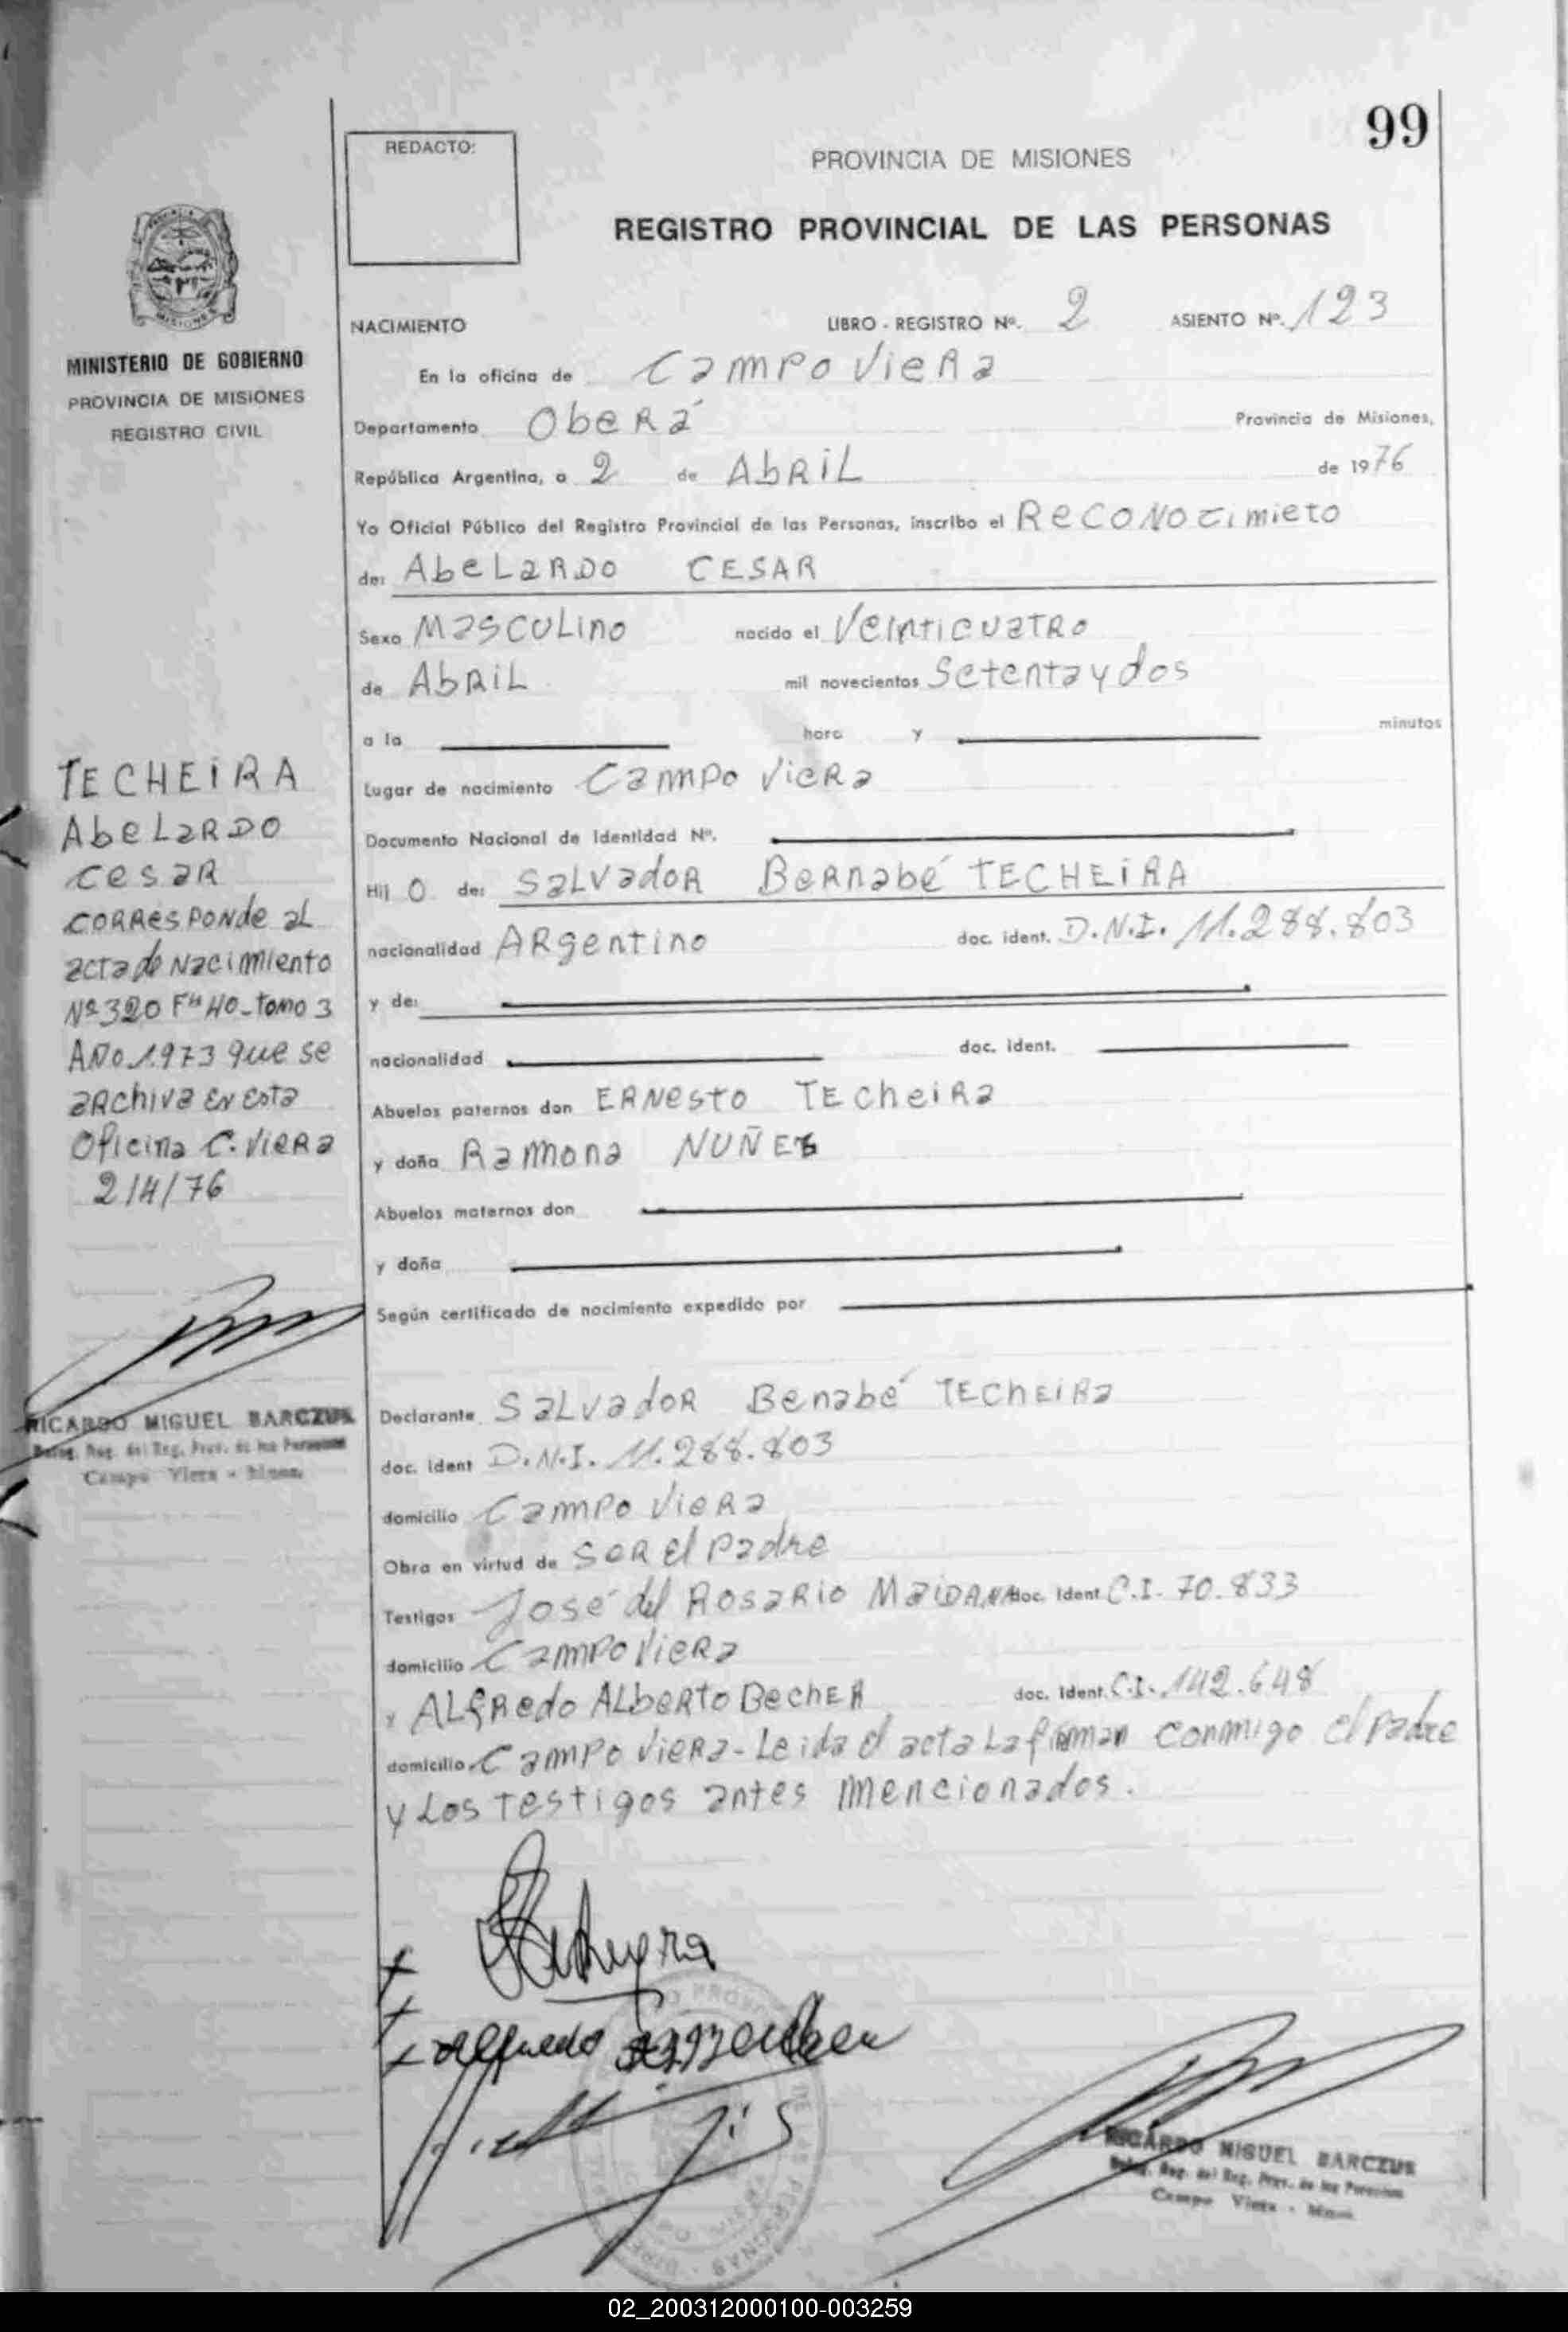 99
REDACTO:
PROVINCIA DE MISIONES
REGISTRO PROVINCIAL DE LAS PERSONAS
MISIONES
MINISTERIO DE GOBIERNO
PROVINCIA DE MISIONES
REGISTRO CIVIL
NACIMIENTO LIBRO - REGISTRO Nº. 2 ASIENTO Nº. 123
En la oficina de Campo Viera
Departamento Oberá Provincia de Misiones,
República Argentina, a 2 de Abril de 1976
Yo Oficial Público del Registro Provincial de las Personas, inscribo el Reconocimieto
de: Abelardo CESAR
Sexo Masculino nacido el Veinticuatro
de Abril mil novecientos Setenta y dos
a la hora y minutos
Lugar de nacimiento Campo Viera
Documento Nacional de Identidad Nº.
Hij o de: Salvador Bernabé TECHEIRA
nacionalidad Argentino doc. ident. D.N.I. 11.288.803
y de:
nacionalidad doc. ident.
Abuelos paternos don Ernesto Techeira
y doña Ramona NUÑEZ
Abuelos maternos don
y doña
Según certificado de nacimiento expedido por
TECHEIRA
Abelardo
Cesar
Corresponde al
acta de Nacimiento
Nº 320 Fº 40 - Tomo 3
Año 1.973 que se
archiva en esta
Oficina C. Viera
2/4/76
RICARDO MIGUEL BARCZUK
Deleg. Reg. del Reg. Prov. de las Personas
Campo Viera - Mnes.
Declarante Salvador Benabé Techeira
doc. ident D.N.I. 11.288.803
domicilio Campo Viera
Obra en virtud de ser el padre
Testigos José del Rosario Maidana doc. Ident C.I. 70.833
domicilio Campo Viera
y Alfredo Alberto Becher doc. Ident. C.I. 142.648
domicilio Campo Viera - Leida el acta La firman conmigo el padre
y Los testigos antes mencionados.
Alfredo
RICARDO MIGUEL BARCZUK
Deleg. Reg. del Reg. Prov. de las Personas
Campo Viera - Mnes.
02_200312000100-003259